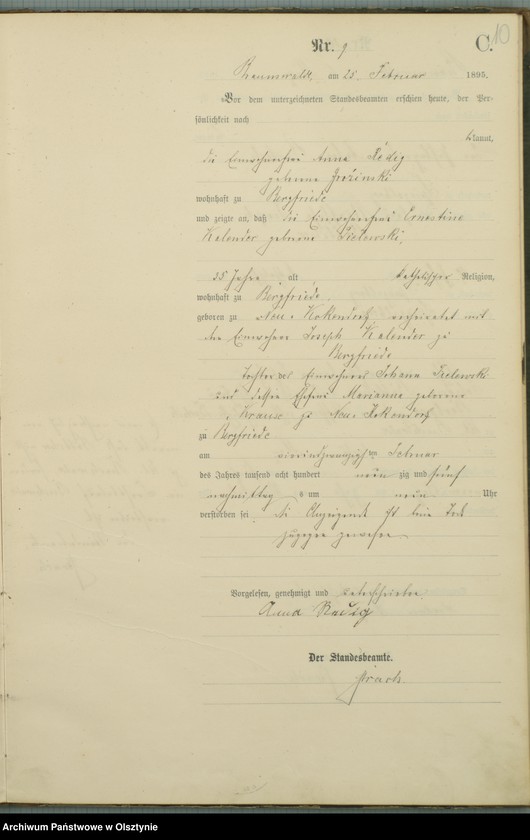 10
Nr. 9 C.
am 25. Februar 1895.
Vor dem unterzeichneten Standesbeamten erschien heute, der Per-
sönlichkeit nach
kannt,
die Einwohnerfrau Anna Radig
geborene
wohnhaft zu Bergfriede
und zeigte an, daß die Einwohnerfrau Ernestine
Kalender geborene
35 Jahre alt, katholischer Religion,
wohnhaft zu Bergfriede,
geboren zu Neu verheiratet mit
dem Einwohner Joseph Kalender zu
Bergfriede
Tochter des Einwohners Johann
und dessen Ehefrau Marianna geborene
Krause zu Neu
zu Bergfriede
am vierundzwanzigsten Februar
des Jahres tausend acht hundert neun zig und fünf
nachmittags um neun Uhr
verstorben sei, die Anzeigende ist beim Tode
zugegen gewesen.
Vorgelesen, genehmigt und unterschrieben
Anna Radig
Der Standesbeamte.
Archiwum Państwowe w Olsztynie